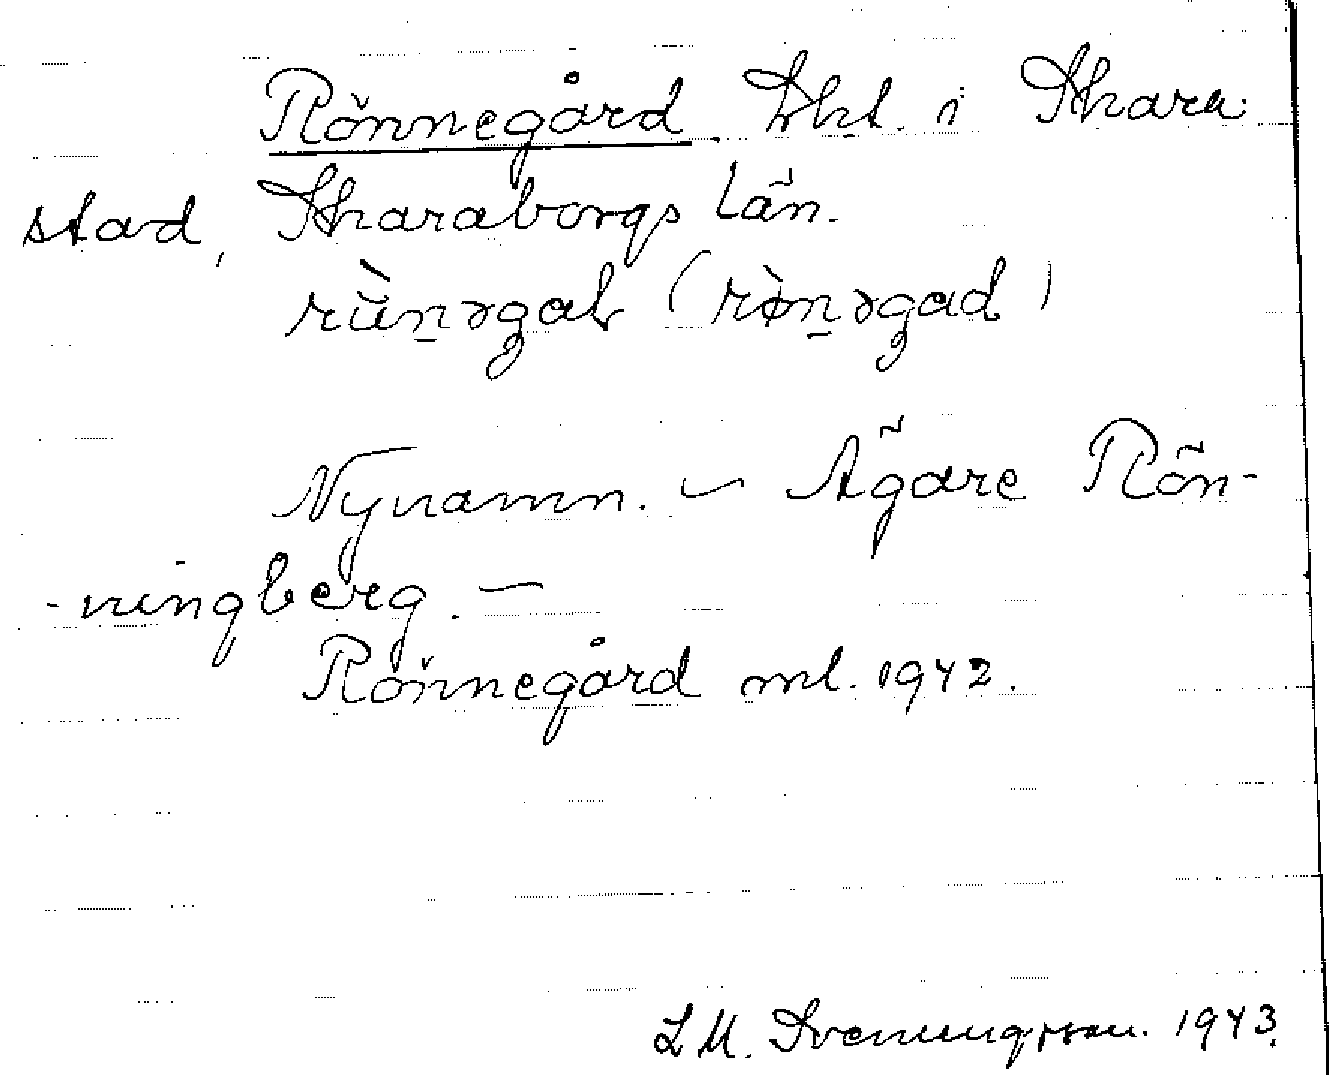 Rönnegård. Lht. i Skara
stad, Skaraborgs län.
rùn̠əgaƚ (røn̠əgad)
Nynamn. – Ägare Rön-
-ningberg. –
Rönnegård ml. 1942.
L M. Svenungsson. 1943.